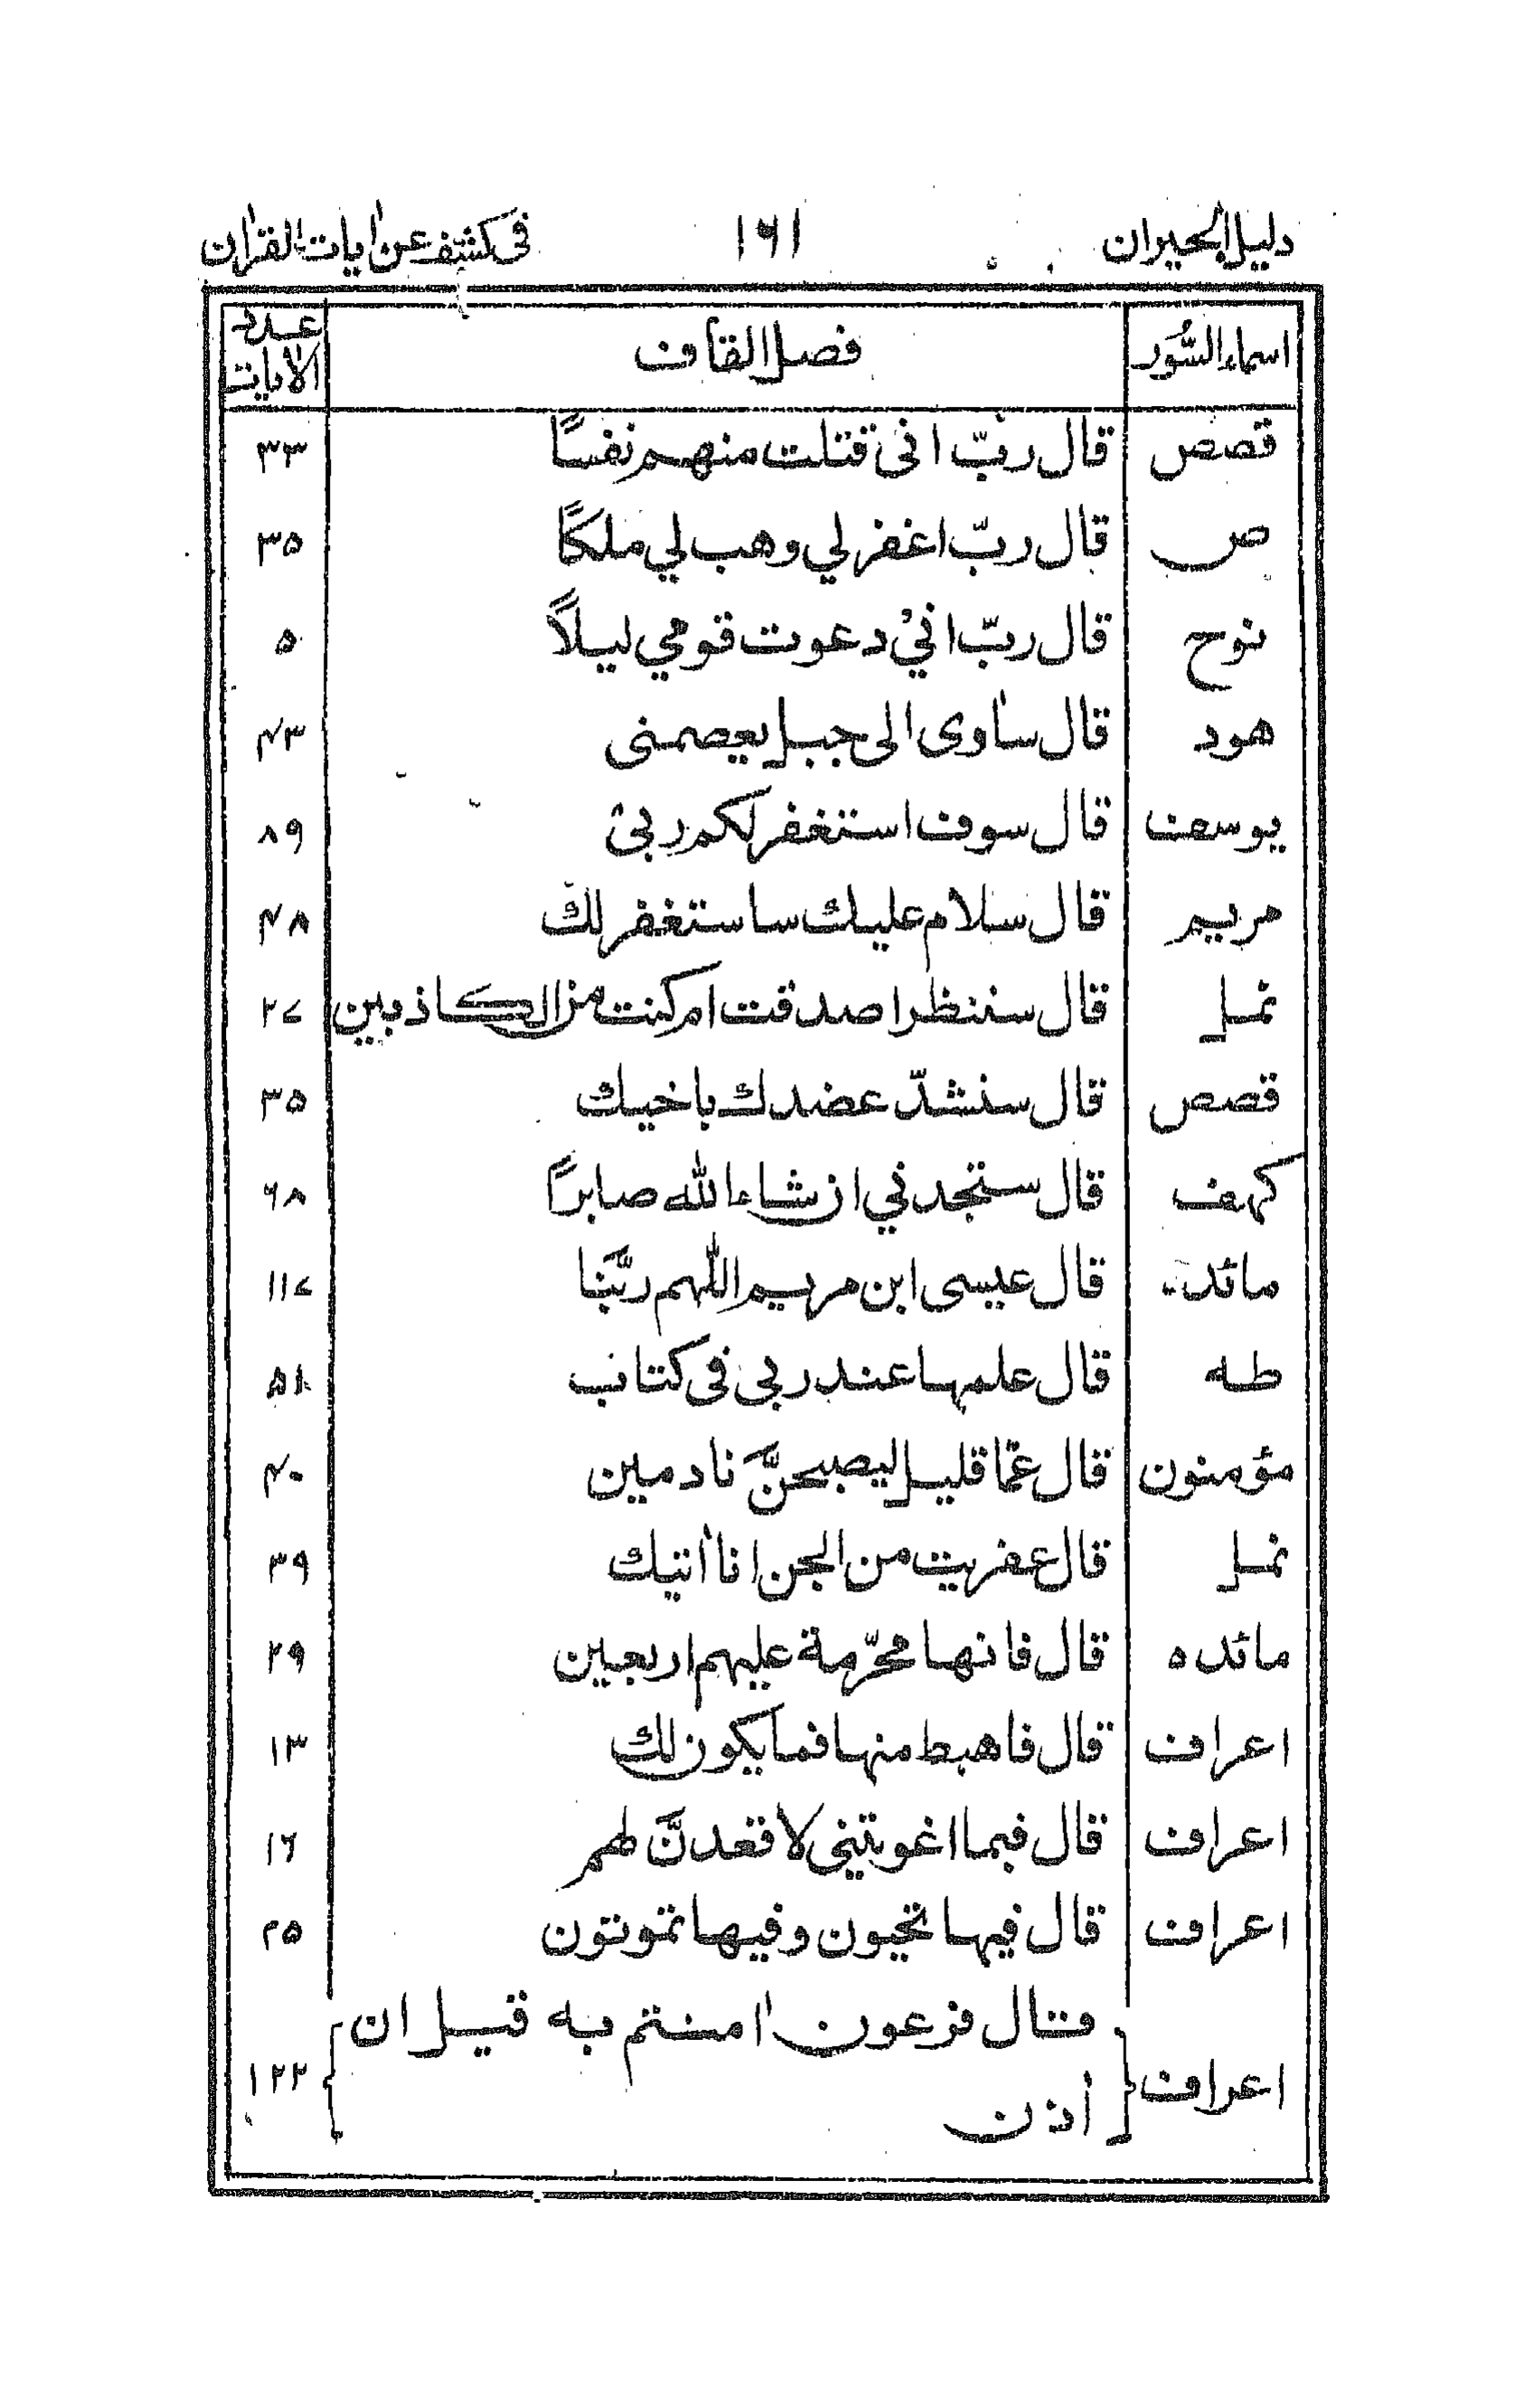 دليل الحيران ١٦١ فى كشف عن ايات القران
اسماء السُّوَر فصل القاف عدد الايات
قصص قال ربّ انى قتلت منهم نفسًا ٣٣
ص قال ربّ اغفر لي وهب لي ملكًا ٣٥
نوح قال ربّ اني دعوت قومي ليلًا ٥
هود قال ساوى الى جبل يعصمنى ٤٣
يوسف قال سوف استغفر لكم ربى ٨٩
مريم قال سلام عليك ساستغفر لك ٤٨
نمل قال سننظر اصدقت ام كنت من الكاذبين ٢٧
قصص قال سنشدّ عضدك باخيك ٣٥
كهف قال ستجدني ان شاء الله صابرًا ٦٨
مائده قال عيسى ابن مريم اللهم ربَّنا ١١٧
طه قال علمها عند ربى فى كتاب ٥١
مؤمنون قال عمّا قليل ليصبحنَّ نادمين ٤٠
نمل قال عفريت من الجن انا اتيك ٣٩
مائده قال فانها محرّمة عليهم اربعين ٢٩
اعراف قال فاهبط منها فما يكون لك ١٣
اعراف قال فبما اغويتنى لاقعدنَّ لهم ١٦
اعراف قال فيها تحيون وفيها تموتون ٢٥
اعراف قال فرعون امنتم به قبل ان ١٢٢
اذن